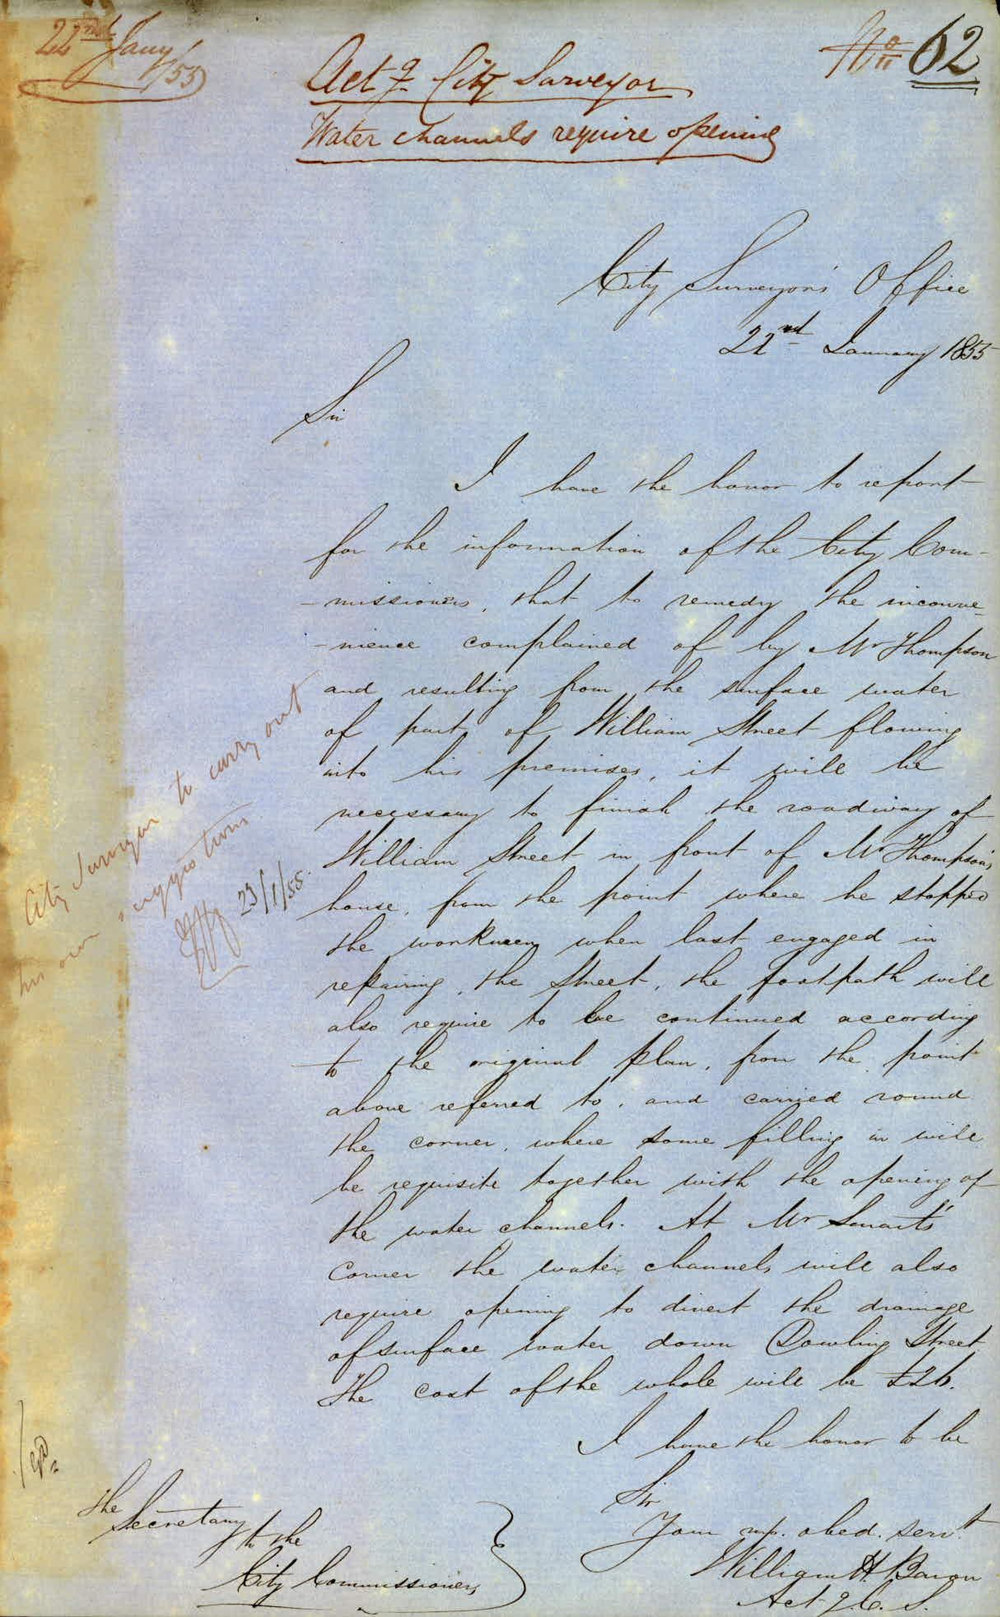 22nd Jany /55
No 62
Actg City Surveyor
Water channels require opening
City Surveyor's Office
22nd January 1855
Sir
I have the honor to report
for the information of the City Com-
-missioners, that to remedy the inconve-
-nience complained of by Mr Thompson
and resulting from the surface water
of part of William Street flowing
into his premises, it will be
necessary to finish the roadway of
William Street in front of Mr Thompson's
house, from the point where he stopped
the workmen when last engaged in
repairing the Street, the footpath will
also require to be continued according
to the original plan, from the point
above referred to, and carried round
the corner, where some filling in will
be requisite together with the opening of
the water channels. At Mr Smart's
Corner the water channels will also
require opening to divert the drainage
of surface water down Dowling Street
The cost of the whole will be £26.
I have the honor to be
Sir
Your mo. obed. servt
William H Baron
Act g C. S.
The Secretary to the
City Commissioners
City Surveyor to carry out
his own suggestions
23/1/55.